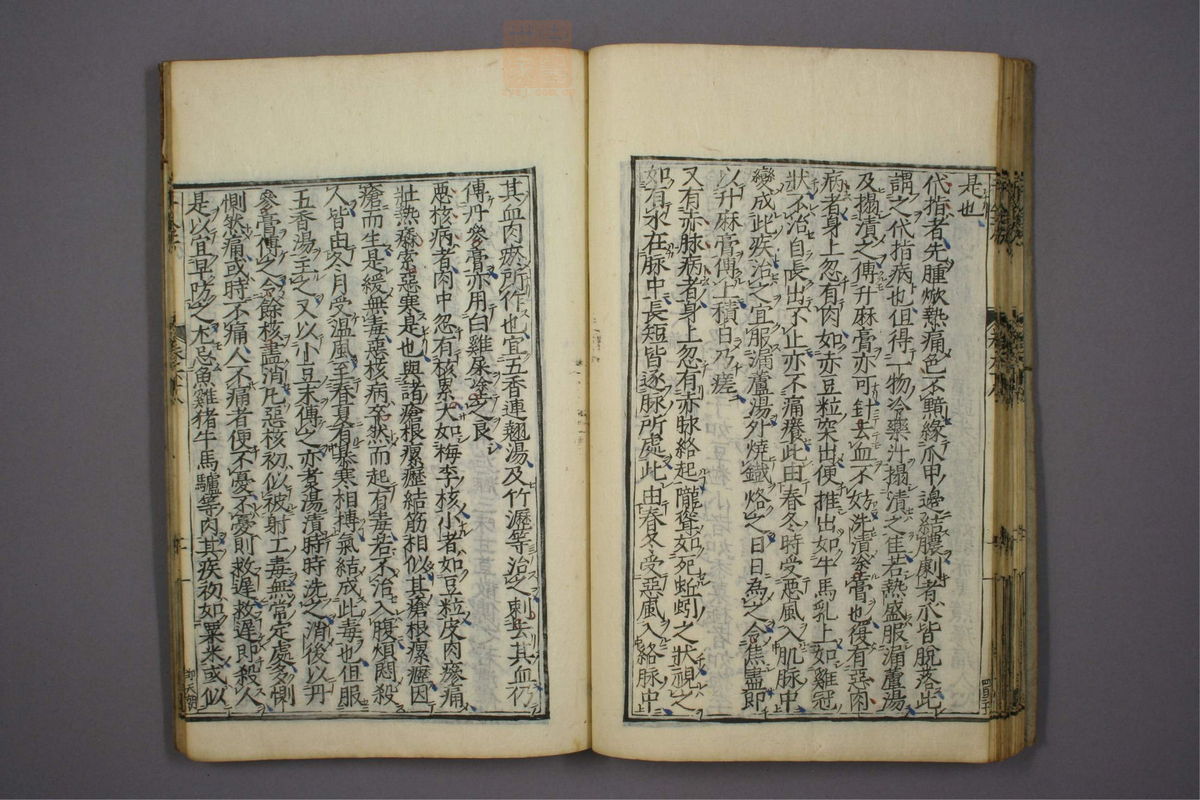 是也
代指者先腫焮熱痛色不黯緣爪甲邊結膿劇者爪皆脫落此
謂之代指病也但得一物冷藥汁搨漬之佳若熱盛服漏蘆湯
及搨漬之傅升麻膏亦可針去血不妨洗漬塗膏也復有惡肉
病者身上忽有肉如赤豆粒突出便推出如牛馬乳上如雞冠
狀不治自長出不止亦不痛癢此由春冬時受惡風入肌脉中
變成此疾治之宜服漏蘆湯外燒鐵烙之日日為之令焦盡即
以升麻膏傅上積日乃瘥
又有赤脉病者身上忽有赤脉絡起隴聳如死蚯蚓之狀視之
如有水在脉中長短皆逐脉所處此由春冬受惡風入絡脉中
其血肉瘀所作也宜五香連翹湯及竹瀝等治之刺去其血仍
傅丹參膏亦用白雞屎塗之良
惡核病者肉中忽有核累大如梅李核小者如豆粒皮肉瘮痛
壯熱㾕索惡寒是也與諸瘡根瘰癧結筋相似其瘡根瘰癧因
瘡而生是緩無毒惡核病卒然而起有毒若不治入腹煩悶殺
人皆由冬月受温風至春夏有暴寒相搏氣結成此毒也但服
五香湯主之又以小豆末傅之亦煮湯漬時時洗之消後以丹
參膏傅之令餘核盡消凡惡核初似被射工毒無常定處多惻
惻然痛或時不痛人不痛者便不憂不憂則救遲救遲即殺人
是以宜早防之尤忌魚雞猪牛馬驢等肉其疾初如粟米或似